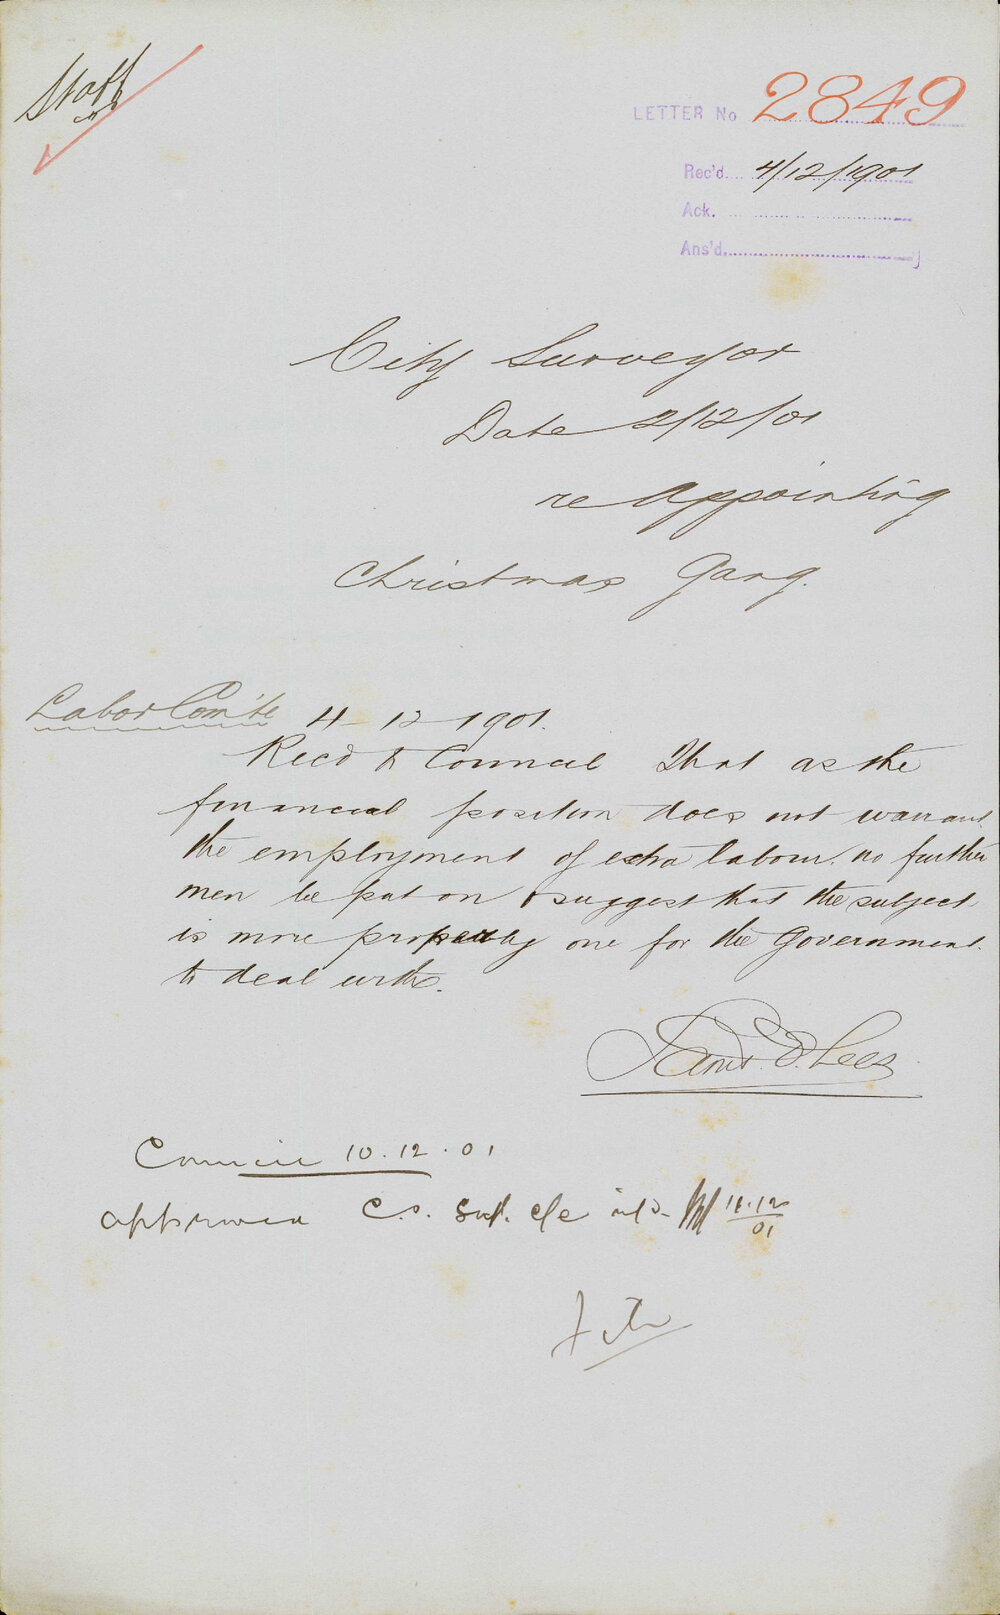 Staff
LETTER No 2849
Rec'd 4/12/1901
Ack.
Ans'd
City Surveyor
Date 2/12/01
re Appointing
Christmas Gang.
Labor Com'te 4-12-1901.
Recd to Council That as the
financial position does not warrant
the employment of extra labour, no further
men be put on & suggest that the subject
is more properly one for the Government
to deal with.
D. Lees
Council 10.12.01
approved C.S. Sup. c/e 11.12
01
File